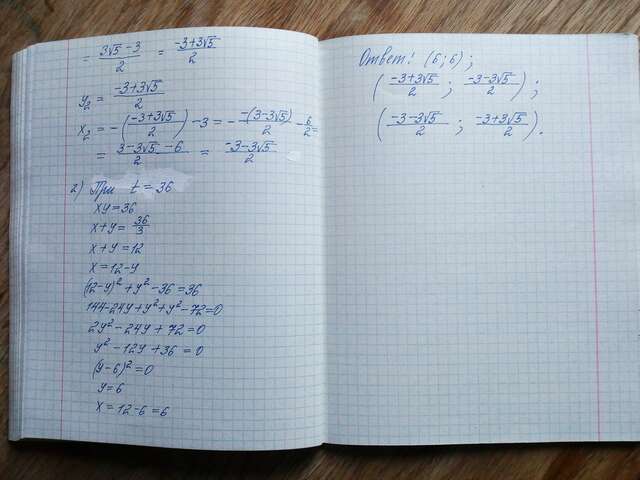 = (3√5 - 3)/2 = (-3+3√5)/2
y₂ = (-3+3√5)/2
x₂ = -((-3+3√5)/2) - 3 = - (-(3-3√5))/2 - 6/2 =
= (3-3√5 - 6)/2 = (-3-3√5)/2
2) При t = 36
xy = 36
x+y = 36/3
x + y = 12
x = 12-y
(12-y)² + y² - 36 = 36
144-24y+y²+y²-72=0
2y² - 24y + 72 = 0
y² - 12y + 36 = 0
(y-6)² = 0
y = 6
x = 12-6 = 6
Ответ: (6; 6);
((-3+3√5)/2 ; (-3-3√5)/2);
((-3-3√5)/2 ; (-3+3√5)/2).